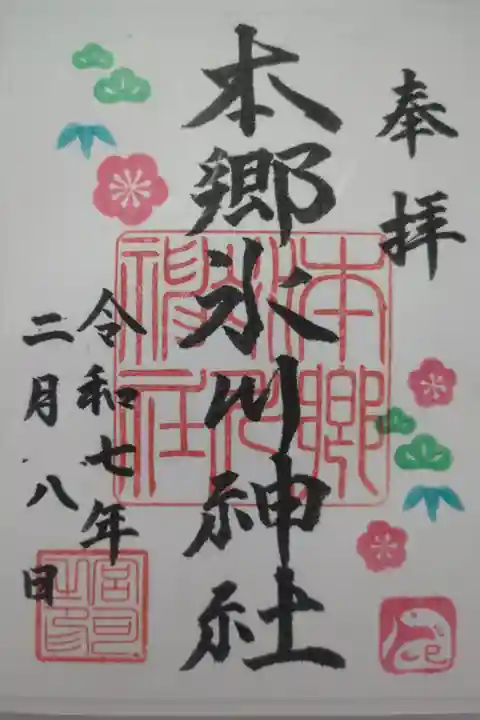 奉拝
本郷氷川神社
令和七年
二月八日
本郷
氷川
神社
巳